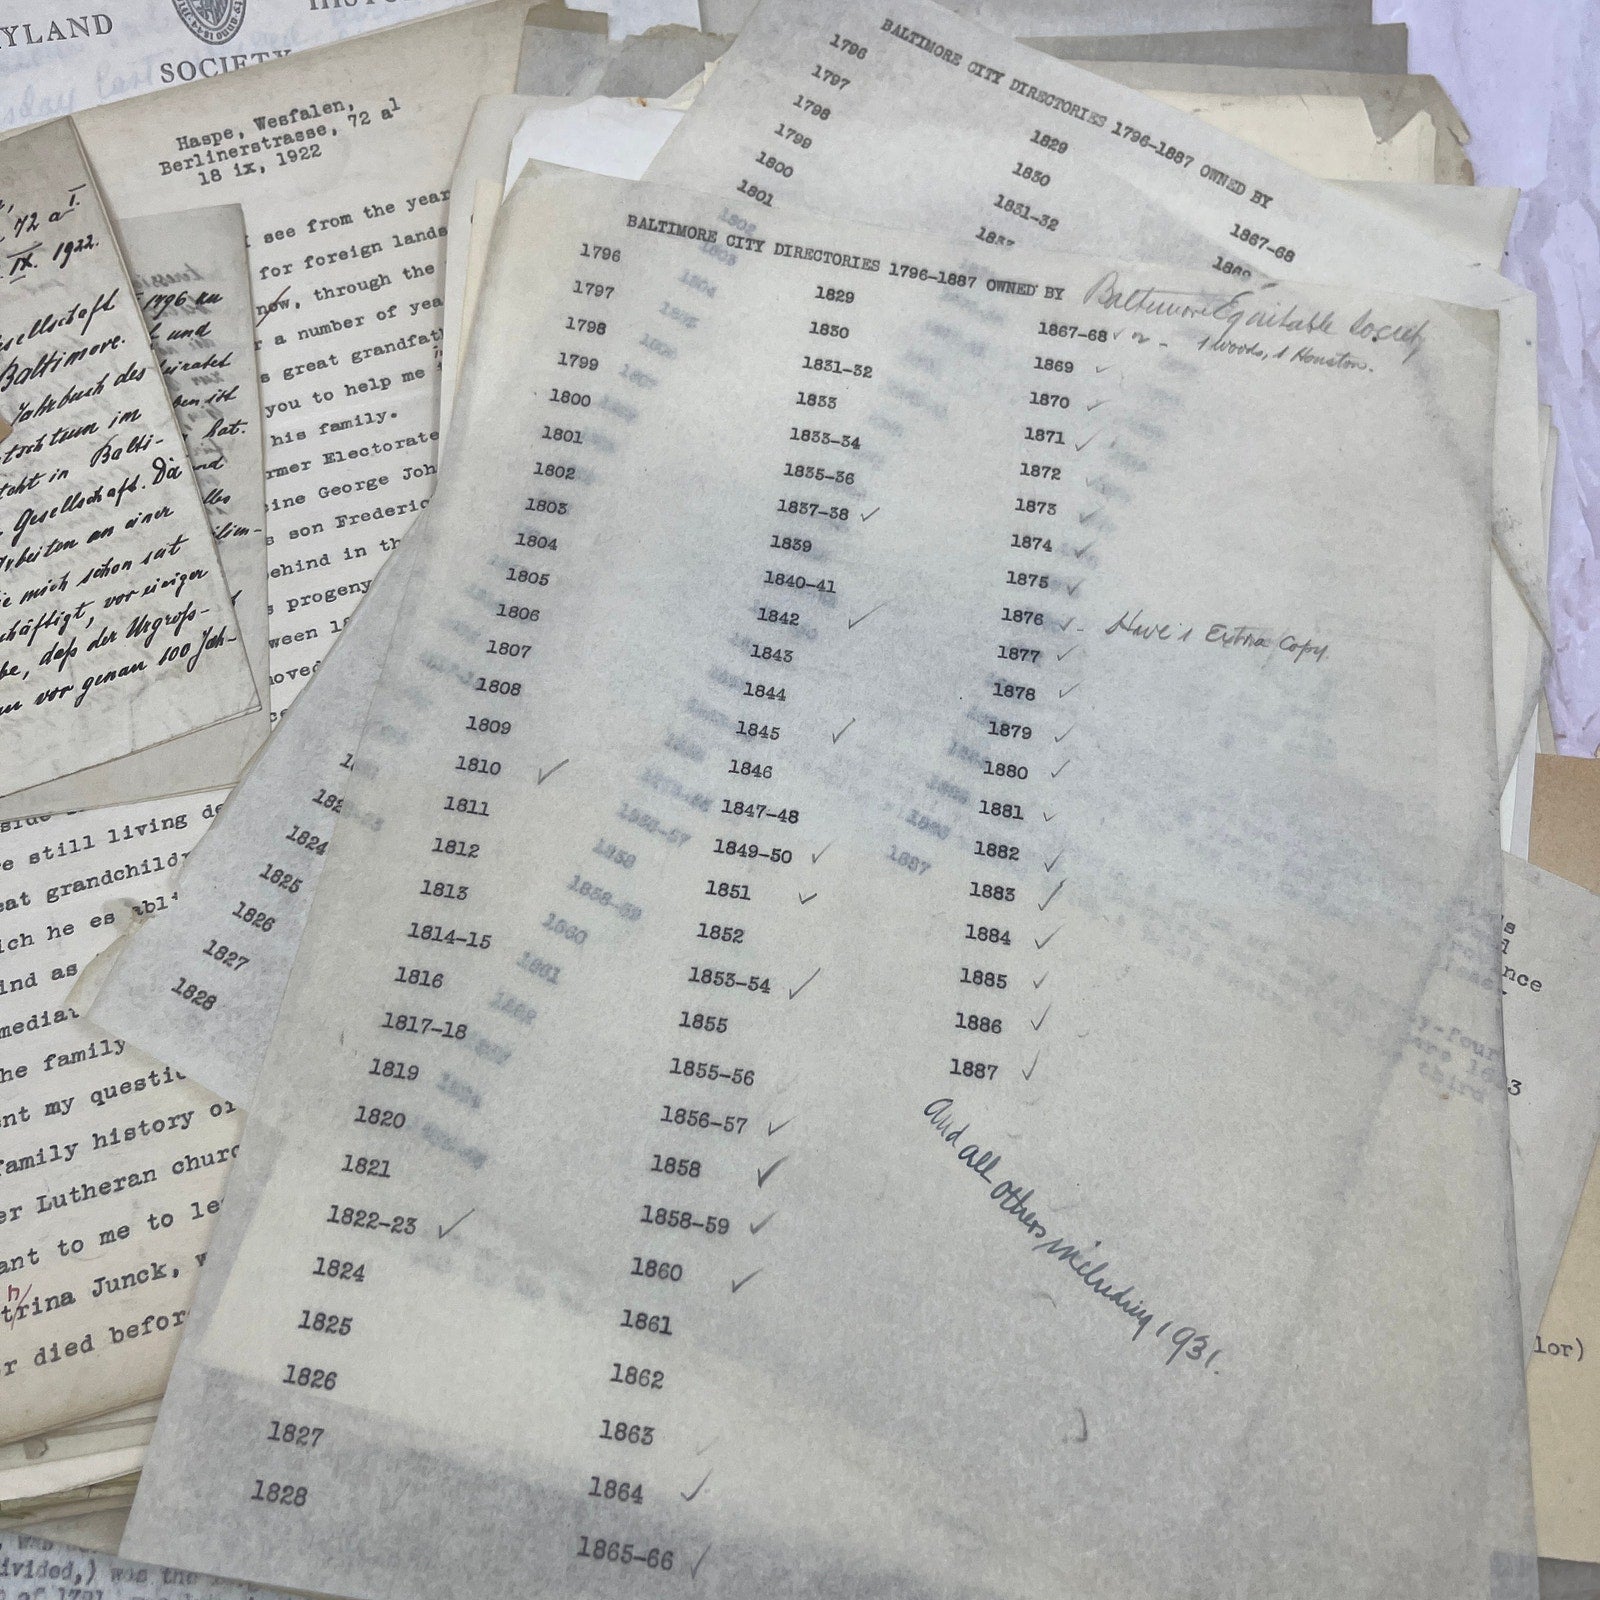 YLAND
SOCIETY
Haspe, Wesfalen,
Berlinerstrasse, 72 a1
18 ix, 1922
see from the year
for foreign lands
now, through the
a number of yea
s great grandfath
you to help me
his family.
rmer Electorate
ine George Joh
s son Frederic
behind in th
s progeny
ween 18
moved
72 a I.
IX. 1922.
esellschaft
Baltimore.
Jahrbuch des
tschtum im
teht in Balti-
Gesellschaft. Die
Arbeiten an einer
ie mich schon seit
chäftigt, vor einiger
be, daß der Urgroß-
vor genau 100 Jah-
1796 an
und
heiratet
ben ist
hat.
und
lles
ilien-
re still living de
eat grandchild
ich he es abl
ind as
media
he family
nt my questi
family history of
er Lutheran churc
ant to me to le
trina Junck, w
n
r died before
BALTIMORE CITY DIRECTORIES 1796-1887 OWNED BY
1796
1797
1798
1799
1800
1801
1824
1825
1826
1827
1828
1829
1830
1831-32
1867-68
BALTIMORE CITY DIRECTORIES 1796-1887 OWNED BY Baltimore Equitable Society
1796
1797
1798
1799
1800
1801
1802
1803
1804
1805
1806
1807
1808
1809
1810 ✓
1811
1812
1813
1814-15
1816
1817-18
1819
1820
1821
1822-23 ✓
1824
1825
1826
1827
1828
1829
1830
1831-32
1833
1833-34
1835-36
1837-38 ✓
1839
1840-41
1842 ✓
1843
1844
1845 ✓
1846
1847-48
1849-50 ✓
1851 ✓
1852
1853-54 ✓
1855
1855-56
1856-57 ✓
1858 ✓
1858-59 ✓
1860 ✓
1861
1862
1863
1864 ✓
1865-66 ✓
1867-68 ✓ 2 - 1 Woods, 1 Houston.
1869 ✓
1870 ✓
1871 ✓
1872 ✓
1873 ✓
1874 ✓
1875 ✓
1876 ✓ - Have 1 Extra Copy.
1877 ✓
1878 ✓
1879 ✓
1880 ✓
1881 ✓
1882 ✓
1883 ✓
1884 ✓
1885 ✓
1886 ✓
1887 ✓
And all others including 1931.
nce
lor)
ivided,) was the
of 1791